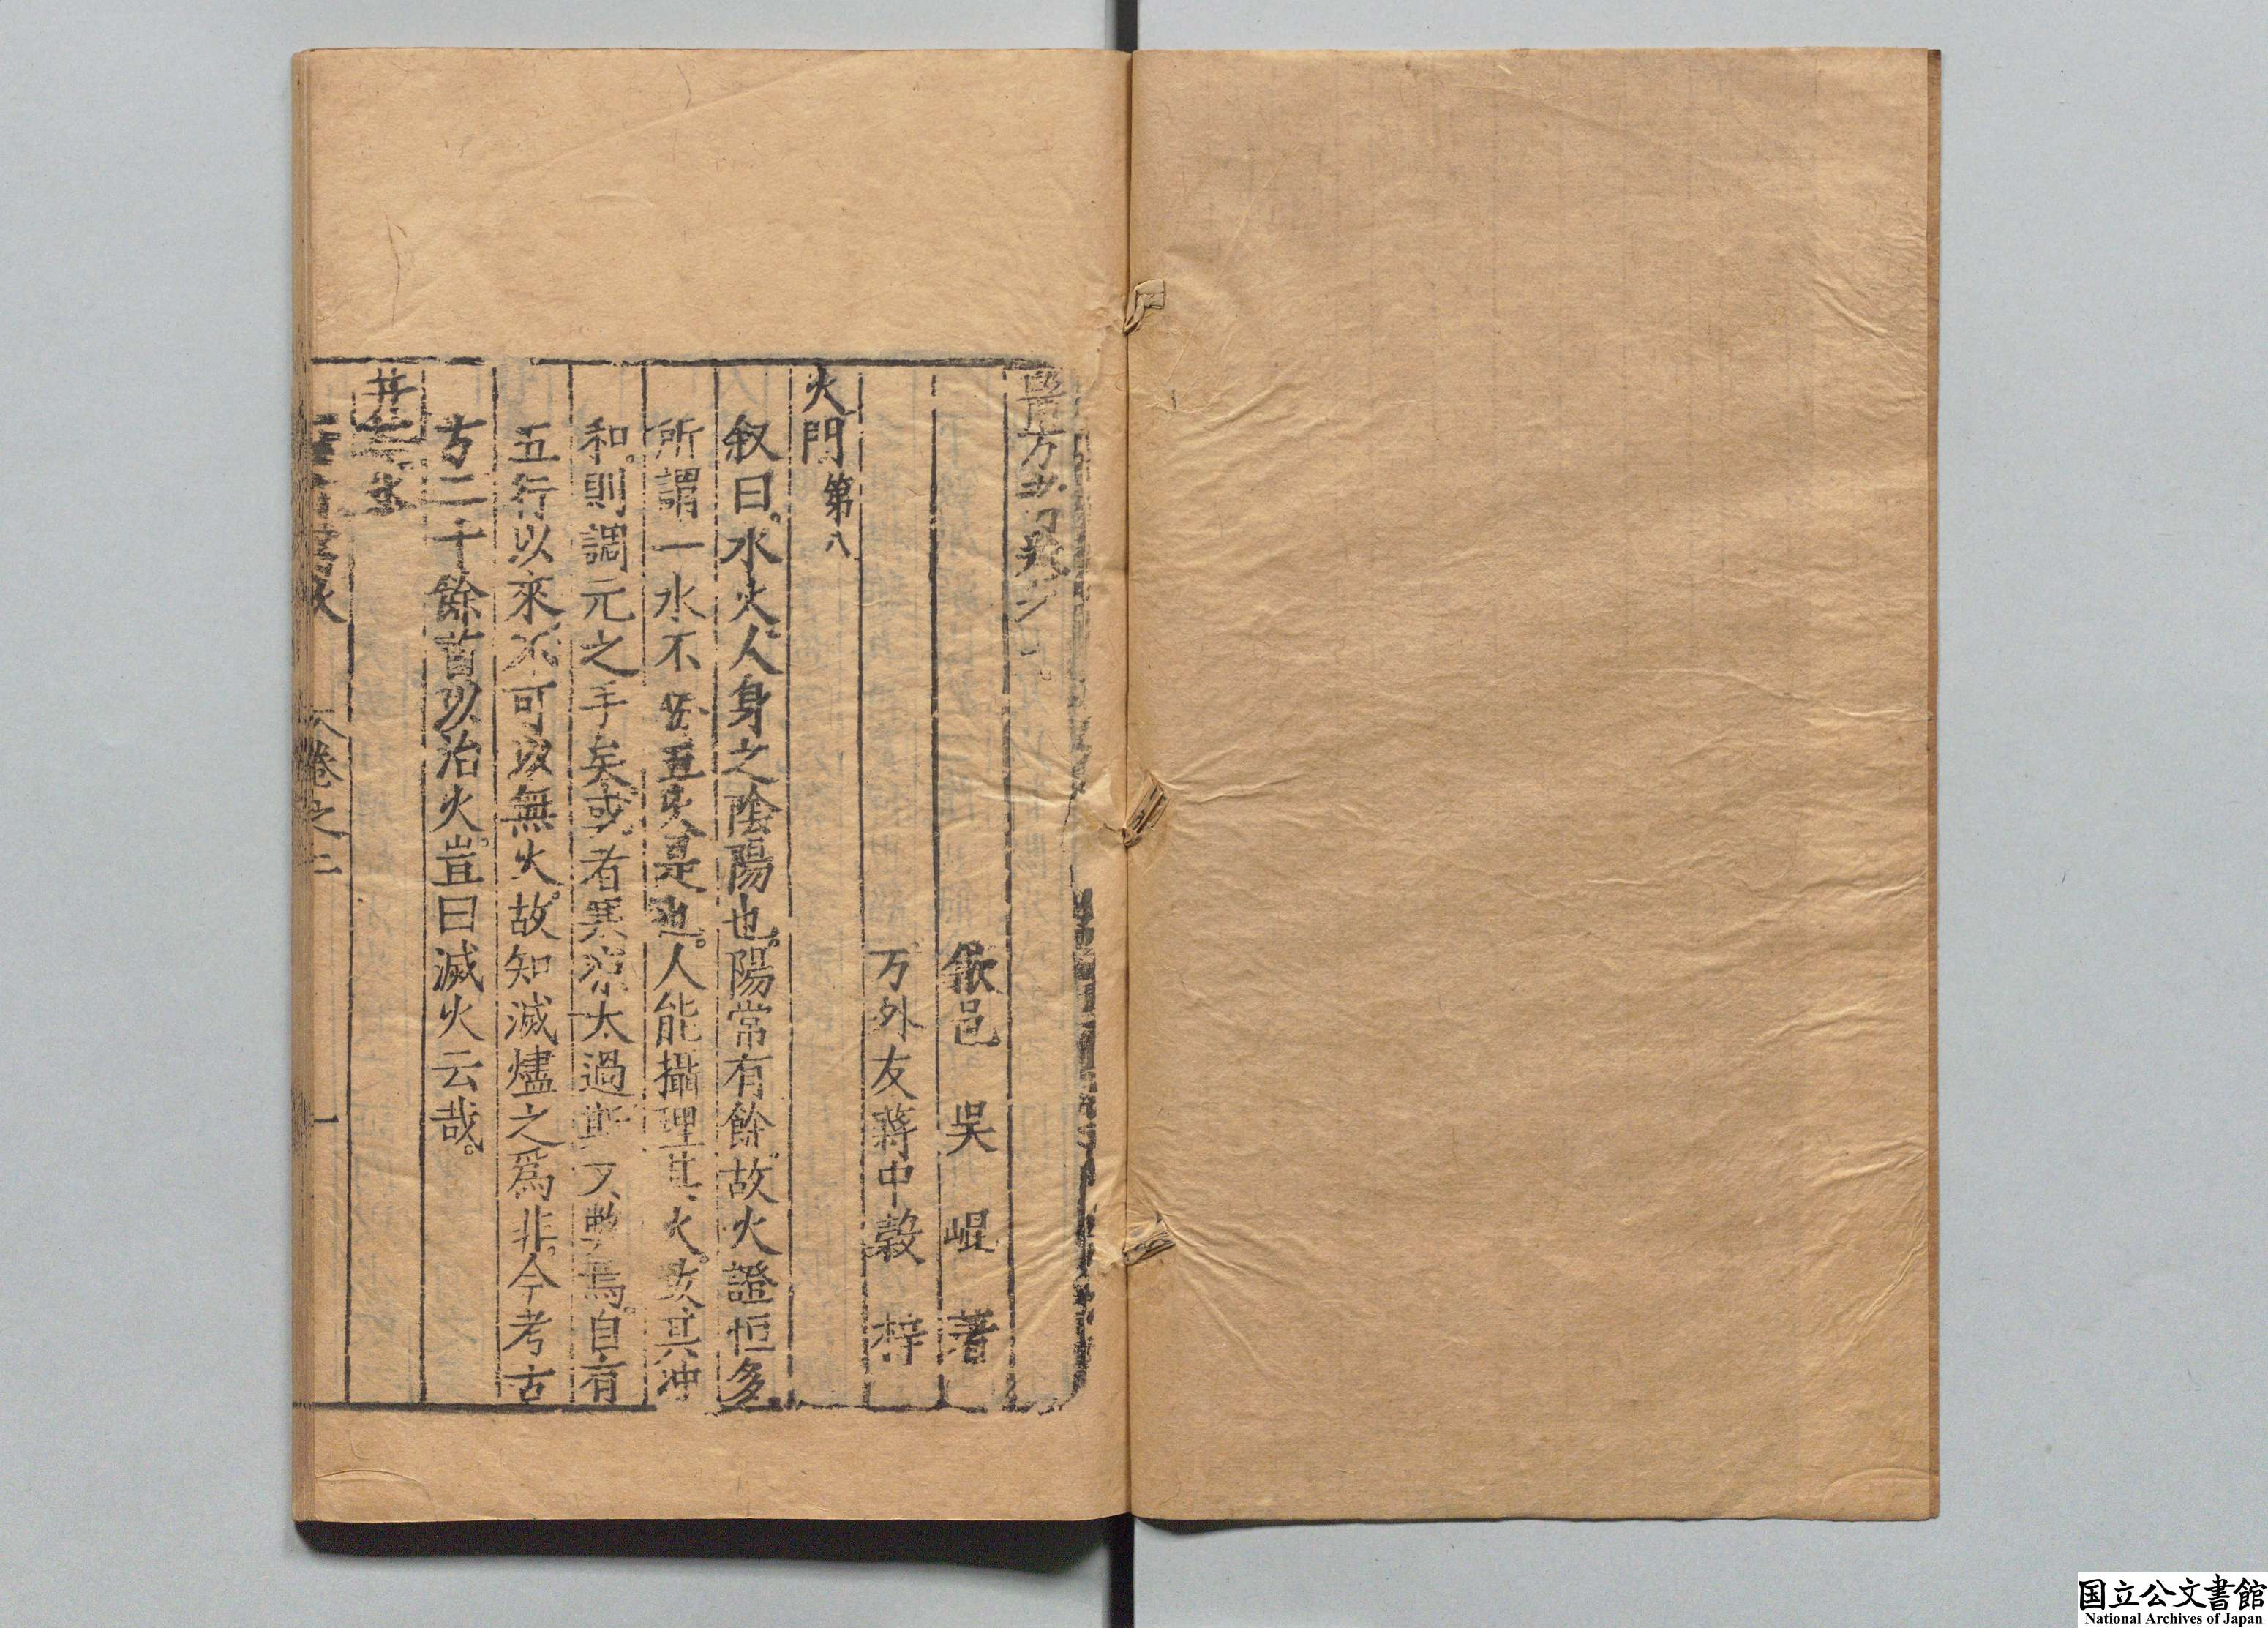 醫方考卷之二
歙邑 吳 崐 著
方外友蔣中穀 梓
火門第八
叙曰水火人身之陰陽也陽常有餘故火證恒多
所謂一水不勝五火是也人能攝理其火致其冲
和則調元之手矣或者寒凉太過斯又弊焉自有
五行以來不可以無火故知滅燼之爲非今考古
方二十餘首以治火豈曰滅火云哉
井水
卷之二
一
国立公文書館
National Archives of Japan